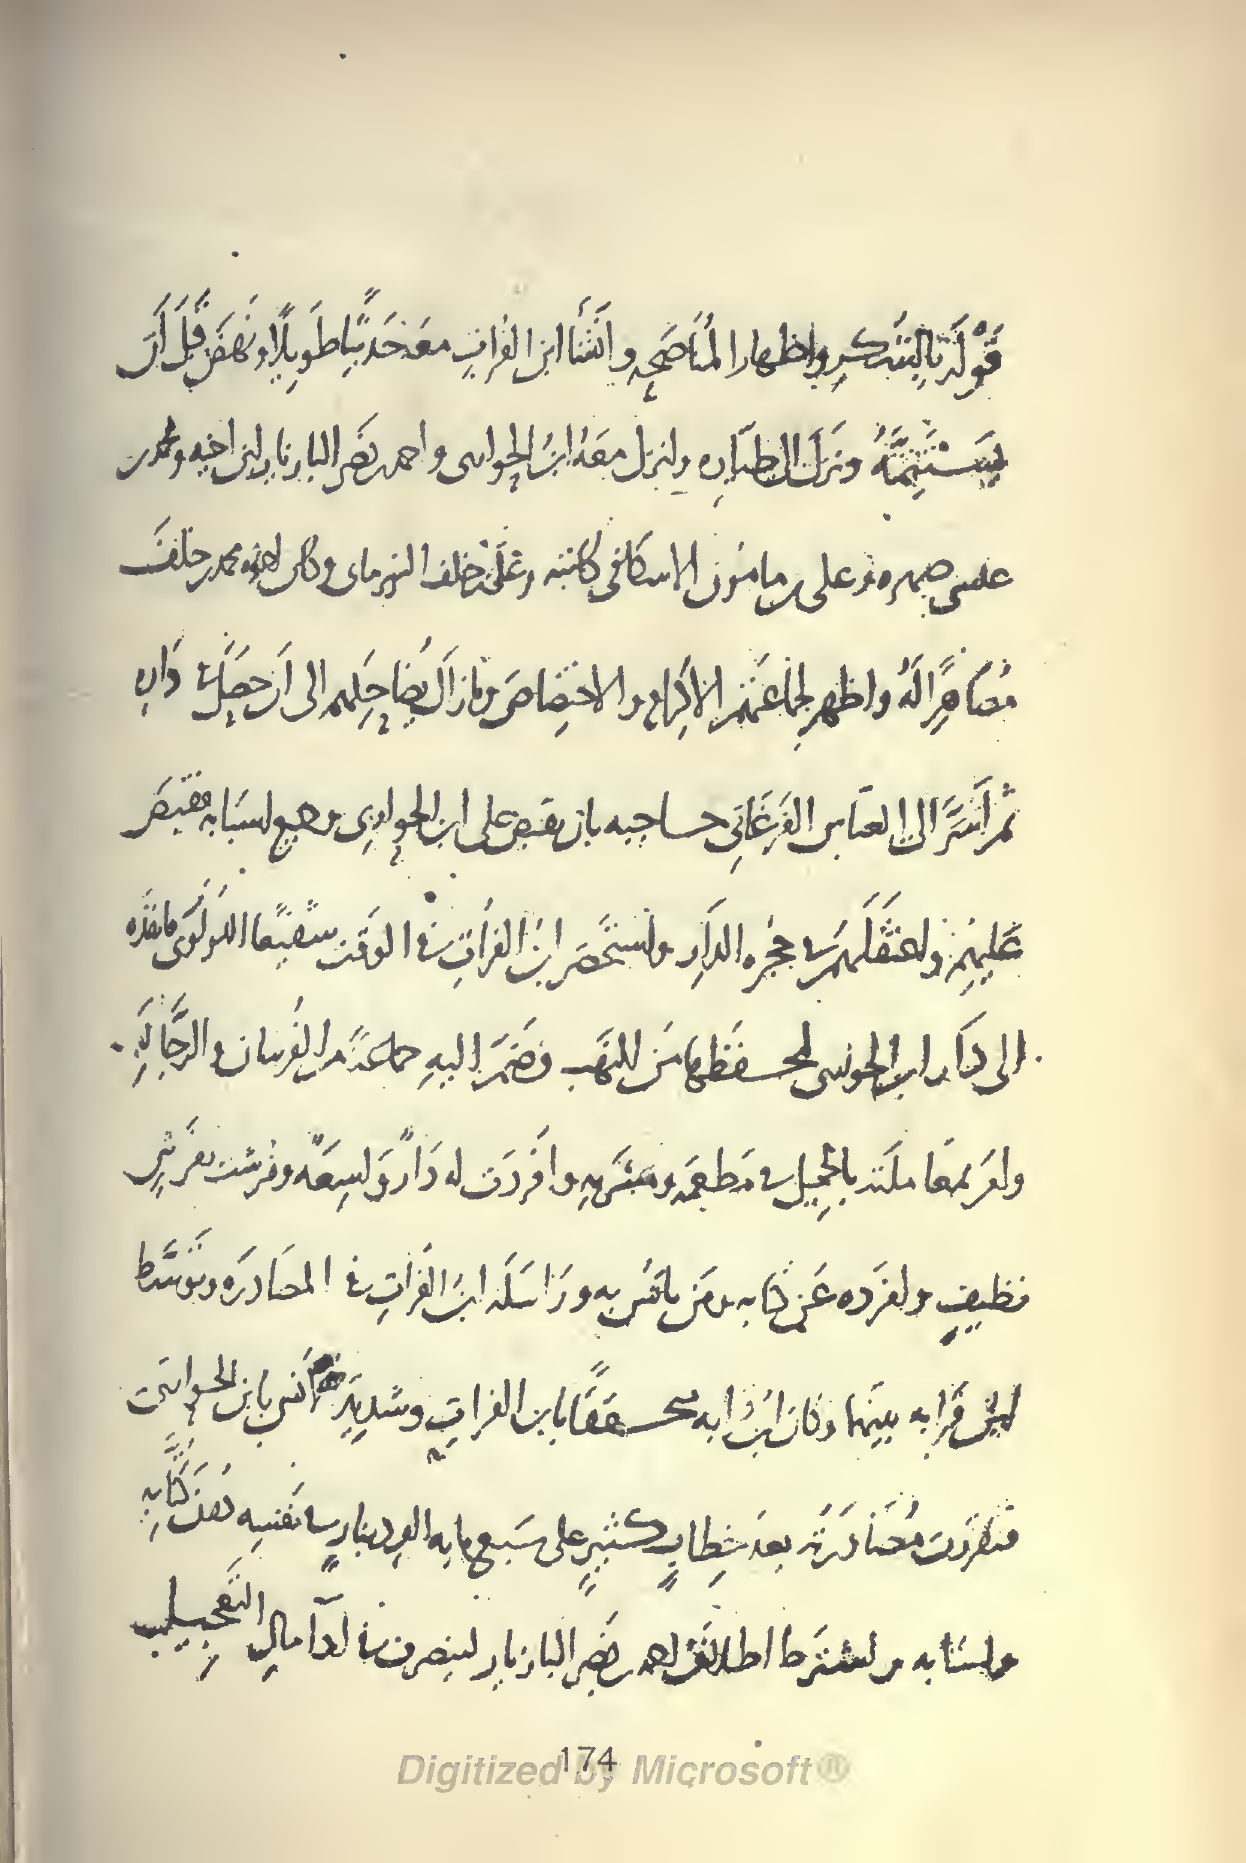 قوله بالتنكر واظهار المناصحه وانشا ابن الفرات معه حديثا طويلا ونهض قبل ان
يستتمه ونزل الى طياره ونزل معه ابن الحواري واحمد بن نصر البازيار ابن اخيه ومحمد بن
عيسى صهره وعلى بن مامون الاسكافي كاتبه وعلى بن خلف النهرماى وكان اخوه محمد بن خلف
مصاهرا له واظهر لجماعتهم الاكرام والاختصاص وما زال يضاحكهم الى ان حصل في داره
ثم اسر الى العباس الفرغاني حاجبه بان يقبض على ابن الحواري وجميع اسبابه فقبض
عليهم واعتقلهم في حجره الدار واستحضر ابن الفرات في الوقت شفيعا اللولوى فانفذه
الى دار ابن الحوارى لحفظها من النهب وضم اليه جماعة من الفرسان والرجاله
وامر بمعاملته بالجميل في مطعمه ومشربه وافردت له دار واسعه وفرشت بفرش
نظيف وافرده عن كتابه ومن يانس به وراسله ابن الفرات في المصادره وتوسط
ابن قرابه بينهما وكان ابن قرابه متحققا بابن الفرات وشديد الانس بابن الحوارى
فتقررت مصادرته بعد خطاب كثير على سبع مايه الف دينار في نفسه دون كتابه
واسبابه واشترط اطلاق احمد بن نصر البازيار لينصرف في ادا مال التعجيل
174
Digitized by Microsoft®